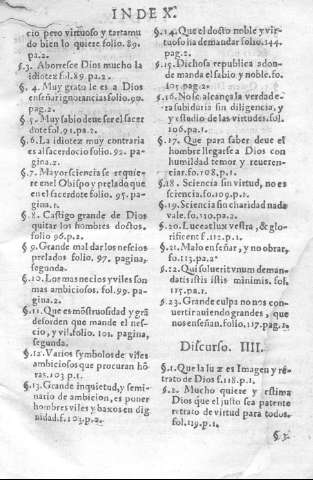 INDEX.
cio pero virtuoso y tartamu
do bien lo quiere folio. 89.
pa.2.
§.3. Aborresce Dios mucho la
idiotez fol.89.pa.2.
§. 4. Muy grato le es a Dios
enseñar ignorancias folio.90.
pag.2.
§.5. Muy sabio deue ser el sacer
dote fol.91.pa.2.
§.6. La idiotez muy contraria
es al sacerdocio folio. 92. pa-
gina.2.
§.7. Mayor sciencia se requie-
re en el Obispo y prelado que
en el sacerdote folio. 95. pa-
gina.1.
§.8. Castigo grande de Dios
quitar los hombres doctos.
folio 96.p.2.
§ 9. Grande mal dar los nescios
prelados folio. 97. pagina,
segunda.
§.10. Los mas necios y viles son
mas ambiciosos. fol. 99. pa-
gina.2.
§.11. Que es mõstruosidad y grã
desorden que mande el nes-
cio, y vil.folio. 101. pagina,
segunda.
§.12. Varios symbolos de viles
ambiciosos que procuran hõ
ras.103 p.1.
§.13. Grande inquietud, y semi-
nario de ambicion, es poner
hombres viles y baxos en dig
nidad.f.103.p.2.
§.14. Que el docto noble y vir-
tuoso ha de mandar folio.144.
pag.2.
§.15. Dichosa republica adon-
de manda el sabio y noble.fo.
105.pag.2.
§.16. No le alcança la verdade-
ra sabiduria sin diligencia, y
y estudio de las virtudes.fol.
106.pa.1.
§.17. Que para saber deue el
hombre llegarse a Dios con
humildad temor y reueren-
ciar.fo.108.p.1.
§.18. Sciencia sin virtud, no es
sciencia.fo.109.p.1.
§.19. Sciencia sin charidad nada
vale.fo.110.pa.2.
§.20. Luceat lux vestra, & glo-
rificent f.112.p.1.
§.21. Malo enseñar, y no obrar,
fo.113.pa.2
§.22. Qui soluerit vnum deman-
datis istis istis minimis. fol.
115.pa.1.
§.23. Grande culpa no nos con-
uertir auiendo grandes, que
nos enseñan.folio.117.pag.1.
Discurso. IIII.
§.1. Que la luz es Imagen y re-
trato de Dios f.118.p.1.
§.2. Mucho quiere y estima
Dios que el justo sea patente
retrato de virtud para todos.
fol.119.p.1.
§.3.